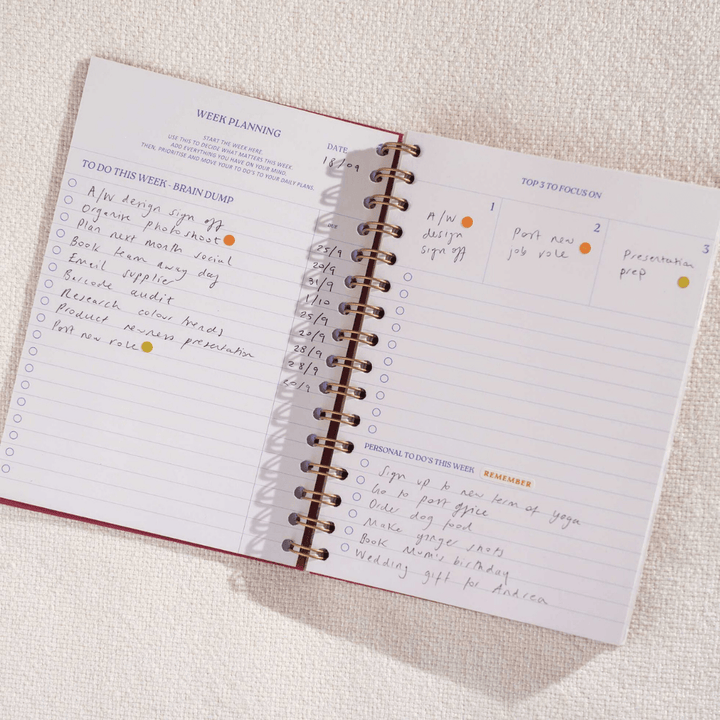 WEEK PLANNING
START THE WEEK HERE.
USE THIS TO DECIDE WHAT MATTERS THIS WEEK.
ADD EVERYTHING YOU HAVE ON YOUR MIND.
THEN, PRIORITISE AND MOVE YOUR TO DO'S TO YOUR DAILY PLANS.
DATE
18/09
TO DO THIS WEEK - BRAIN DUMP
DUE
A/W design sign off 25/9
Organise photoshoot 20/9
Plan next month social 31/9
Book team away day 1/10
Email supplier 25/9
Barcode audit 20/9
Research colour trends 28/9
Product newness presentation 28/9
Post new role 20/9
TOP 3 TO FOCUS ON
1
A/W
design
sign off
2
Post new
job role
3
Presentation
prep
PERSONAL TO DO'S THIS WEEK REMEMBER
Sign up to new term of yoga
Go to post office
Order dog food
Make ginger shots
Book Mum's birthday
Wedding gift for Andrea